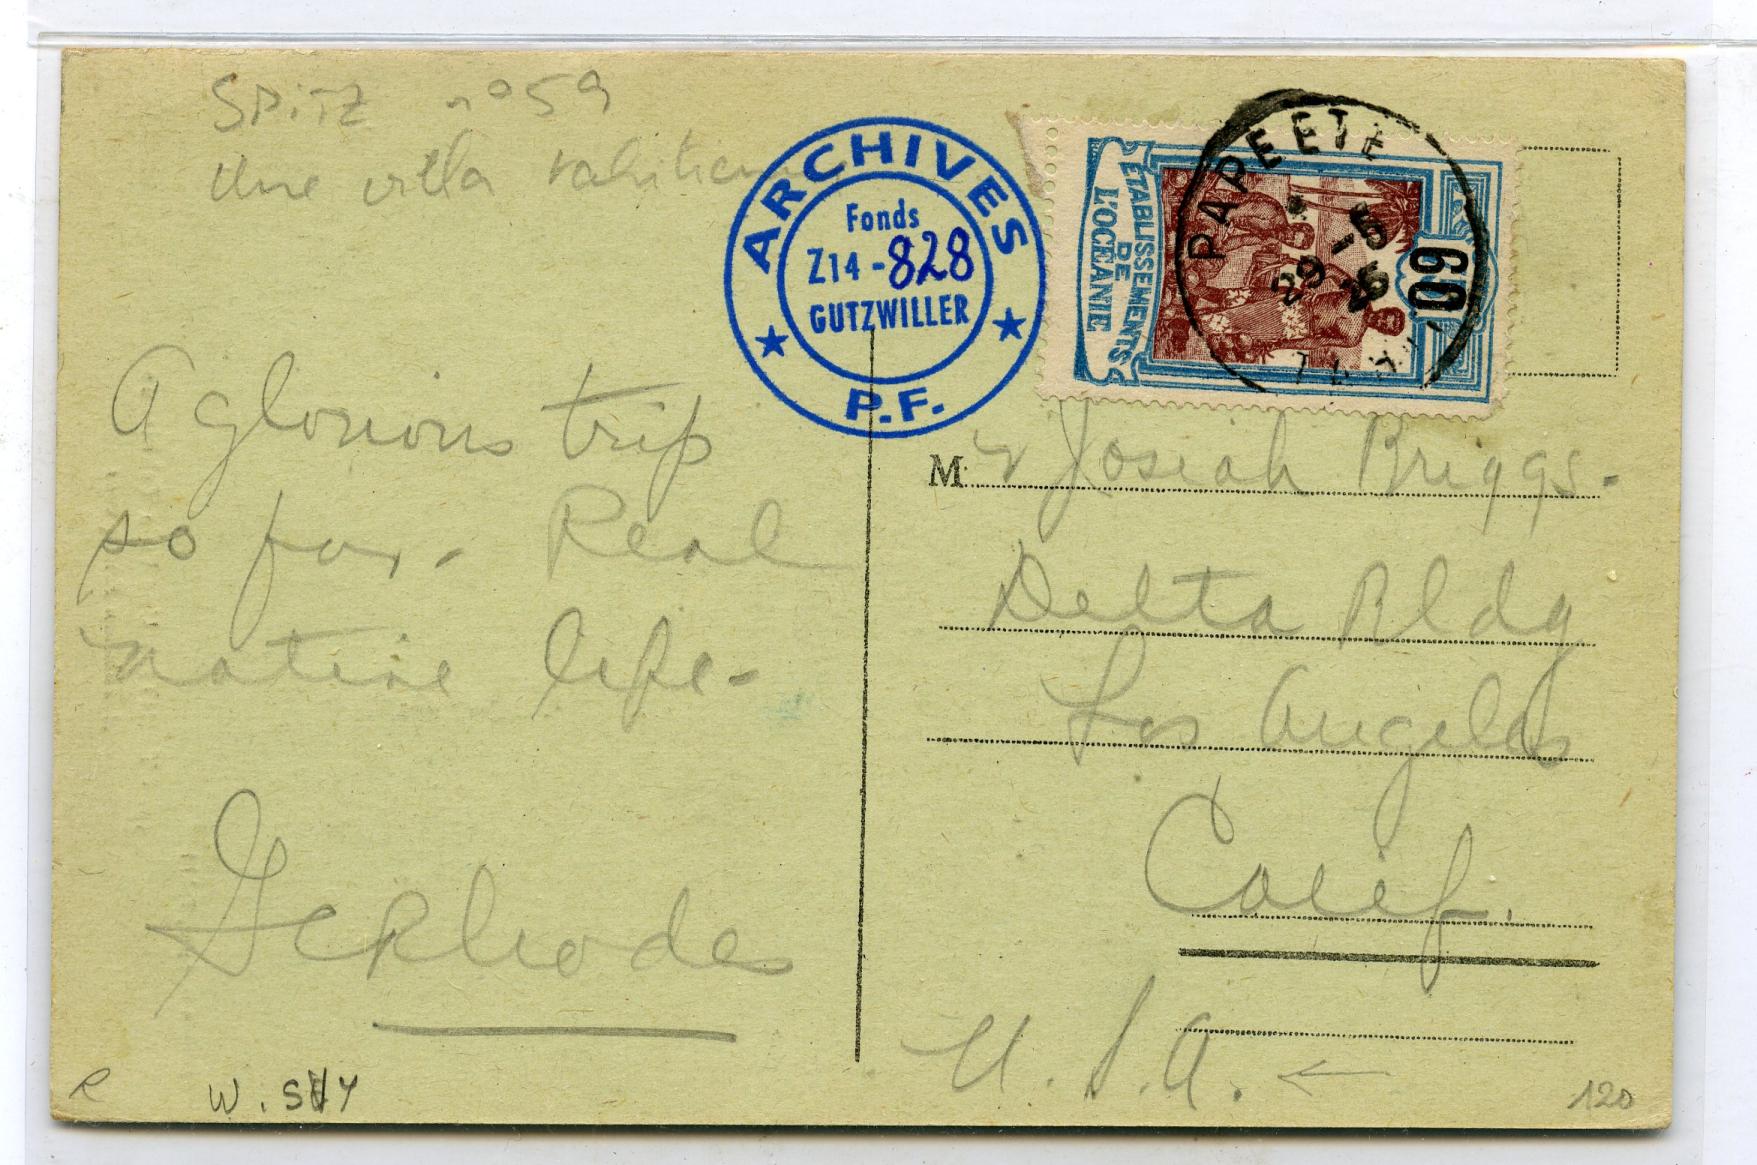 SPITZ n°59
Une villa tahitienne
ARCHIVES
Fonds
Z14-828
GUTZWILLER
P.F.
ETABLISSEMENTS
DE
L'OCEANIE
60
PAPEETE
29 -5
26
A glorious trip
so far. Real
native life-
M r Josiah Briggs.
Delta Bldg
Los Angeles
Calif.
U.S.A. ←
R
W. SVY
120